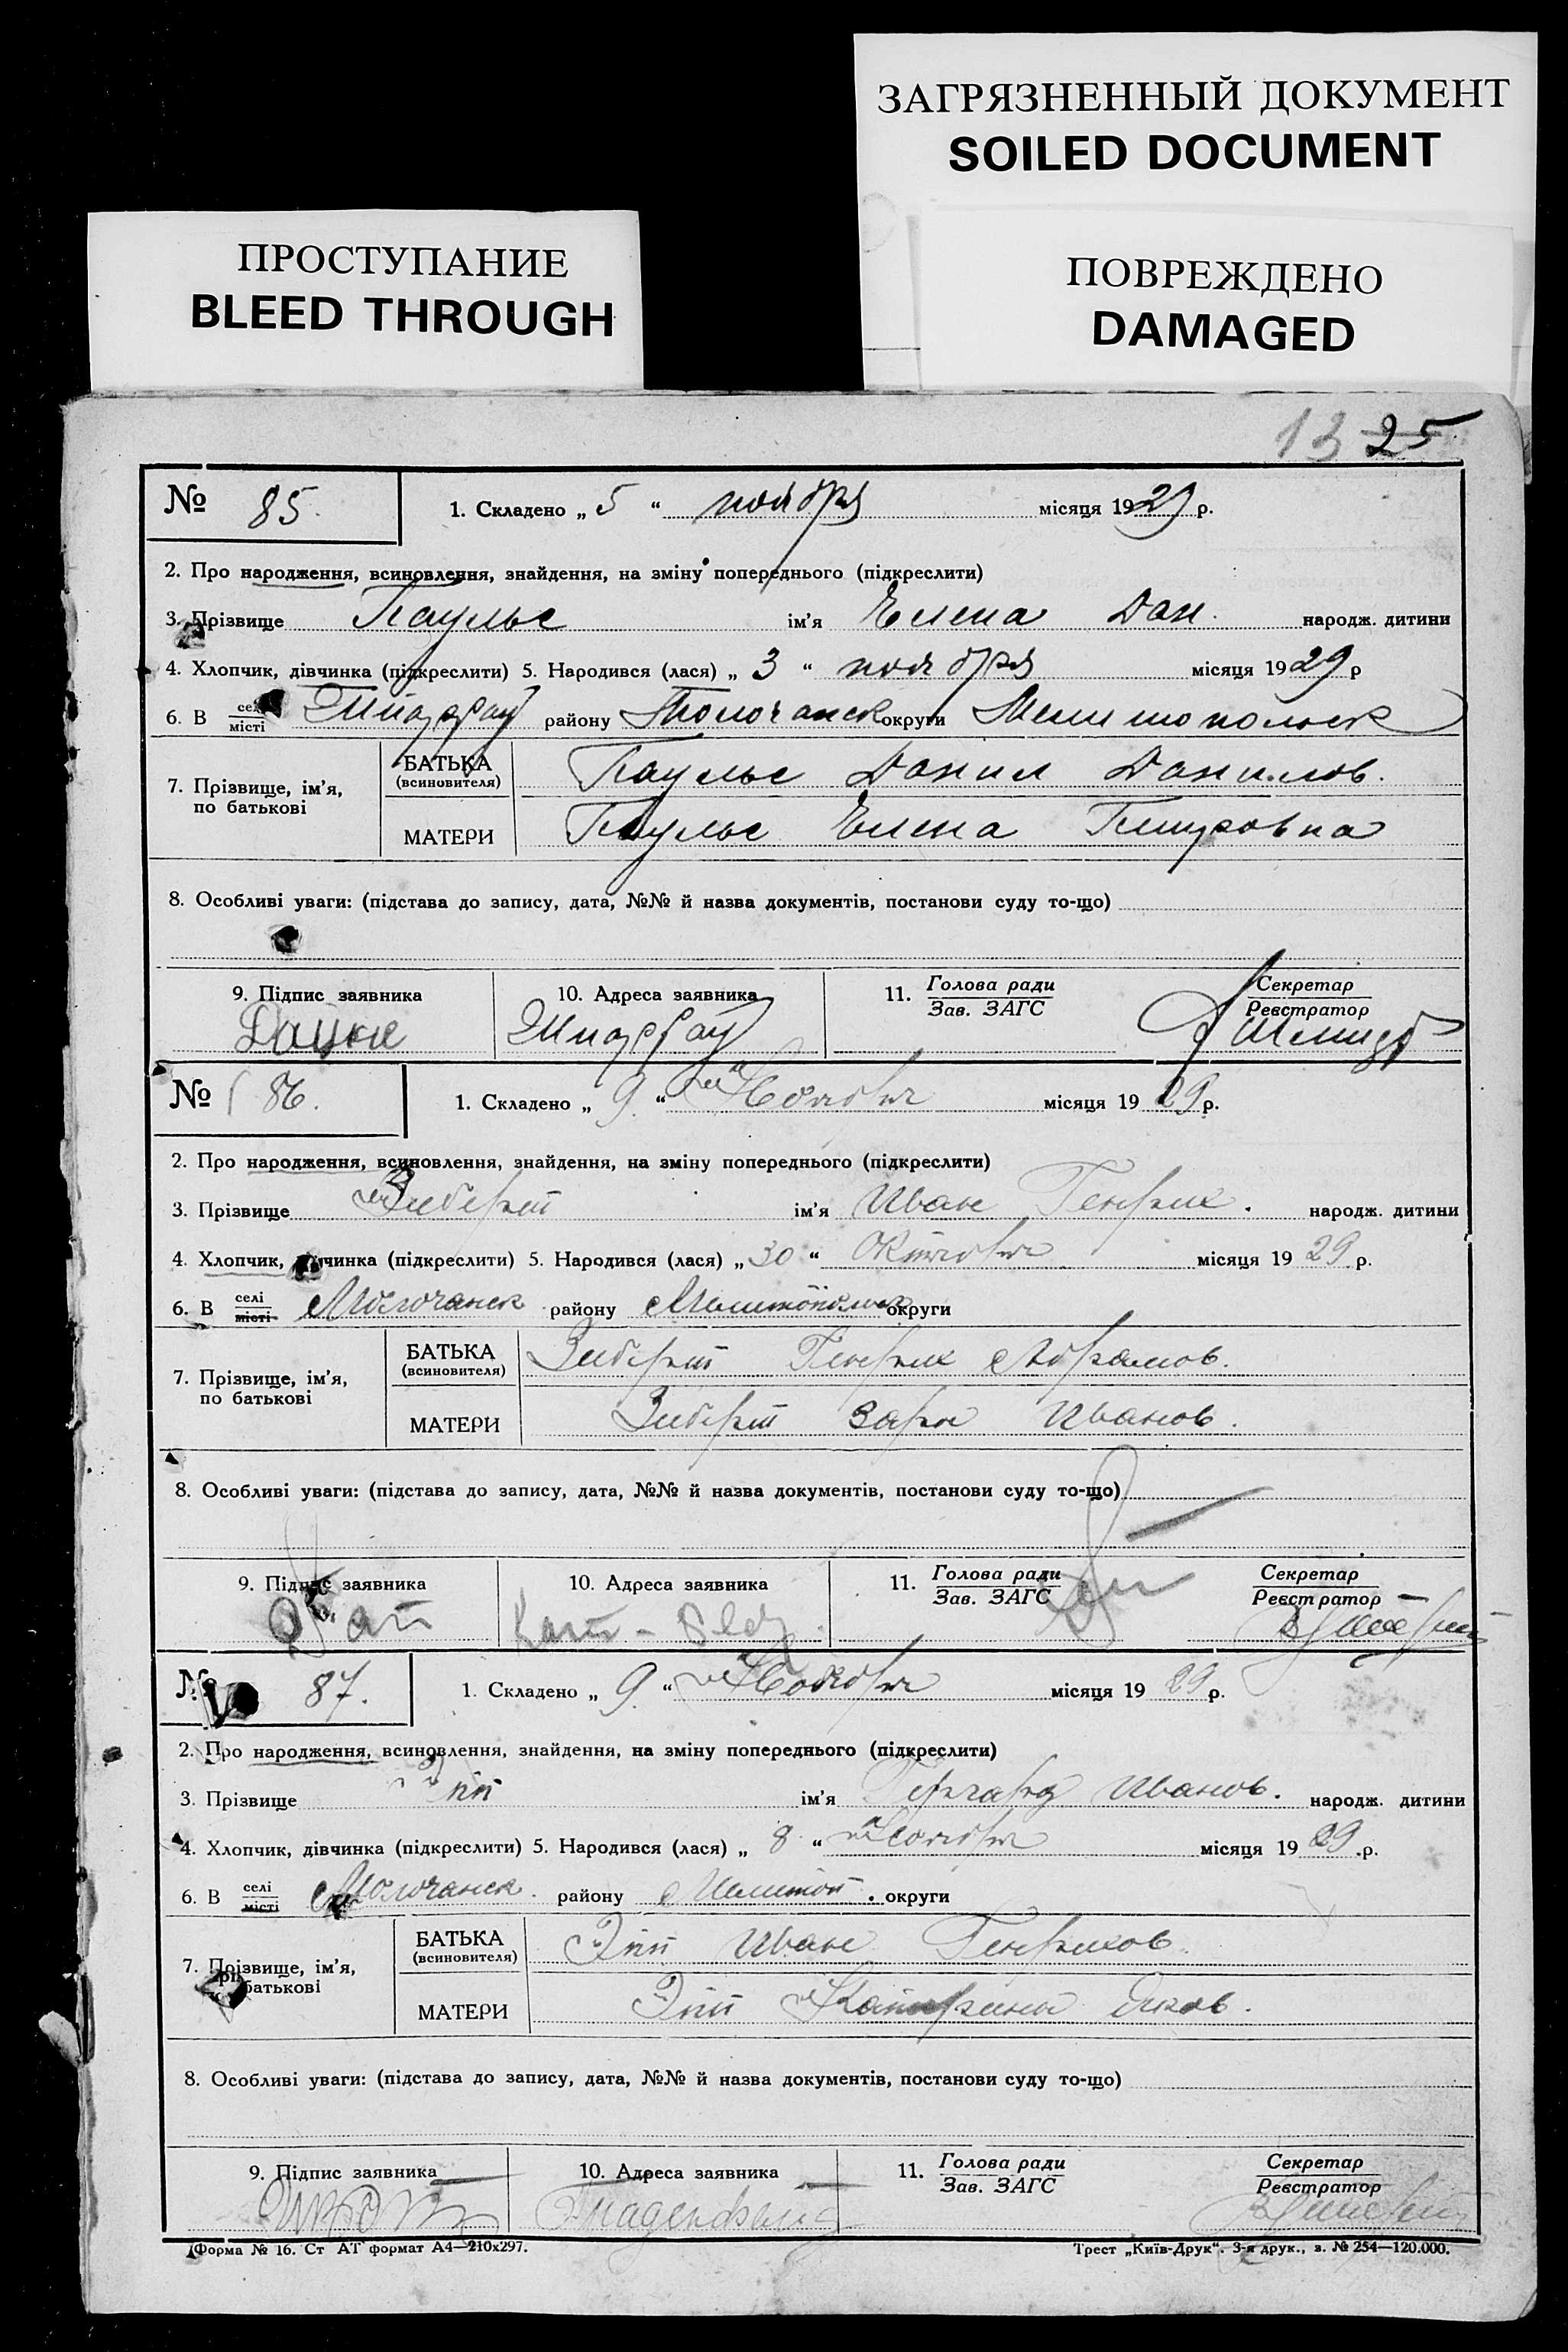 ЗАГРЯЗНЕННЫЙ ДОКУМЕНТ
SOILED DOCUMENT
ПРОСТУПАНИЕ
BLEED THROUGH
ПОВРЕЖДЕНО
DAMAGED
13 25
№ 85. 1. Складено „ 5 “ ноября місяця 1929 р.
2. Про народження, всиновлення, знайдення, на зміну попереднього (підкреслити)
3. Прізвище Паульс ім'я Елена Дан. народж. дитини
4. Хлопчик, дівчинка (підкреслити) 5. Народився (лася) „ 3 “ ноября місяця 1929 р
6. В селі місті району Молочанск округи Мелитопольск
7. Прізвище, ім'я, по батькові БАТЬКА (всиновителя) Паульс Данил Данилов.
МАТЕРИ Паульс Елена
8. Особливі уваги: (підстава до запису, дата, №№ й назва документів, постанови суду то-що)
9. Підпис заявника 10. Адреса заявника 11. Голова ради Зав. ЗАГС Секретар Реєстратор
№ 86. 1. Складено „ 9 “ Ноября місяця 1929 р.
2. Про народження, всиновлення, знайдення, на зміну попереднього (підкреслити)
3. Прізвище Зиберт ім'я Иван Генрих. народж. дитини
4. Хлопчик, дівчинка (підкреслити) 5. Народився (лася) „ 30 “ Октября місяця 1929 р.
6. В селі місті Молочанск району Мелитопольск округи
7. Прізвище, ім'я, по батькові БАТЬКА (всиновителя) Зиберт Генрих Абрамов.
МАТЕРИ Зиберт Зара Иванов.
8. Особливі уваги: (підстава до запису, дата, №№ й назва документів, постанови суду то-що)
9. Підпис заявника 10. Адреса заявника 11. Голова ради Зав. ЗАГС Секретар Реєстратор
№ 87. 1. Складено „ 9 “ Ноября місяця 1929 р.
2. Про народження, всиновлення, знайдення, на зміну попереднього (підкреслити)
3. Прізвище Эпп ім'я Герхард Иванов. народж. дитини
4. Хлопчик, дівчинка (підкреслити) 5. Народився (лася) „ 8 “ Ноября місяця 1929 р.
6. В селі місті Молочанск району Мелитоп. округи
7. Прізвище, ім'я, по батькові БАТЬКА (всиновителя) Эпп Иван Генрихов.
МАТЕРИ Эпп Катерина Яков.
8. Особливі уваги: (підстава до запису, дата, №№ й назва документів, постанови суду то-що)
9. Підпис заявника 10. Адреса заявника 11. Голова ради Зав. ЗАГС Секретар Реєстратор
Форма № 16. Ст АТ формат А4—210х297. Трест „Київ-Друк“. 3-я друк., з. № 254—120.000.